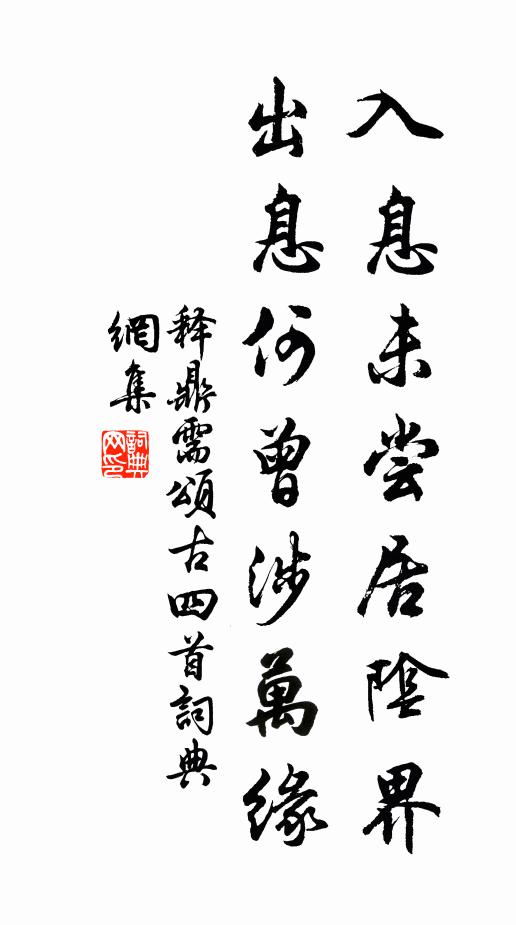 入息未嘗居陰界
出息何曾涉萬緣
释鼎需頌古四首詞典
網集
詞典
网印